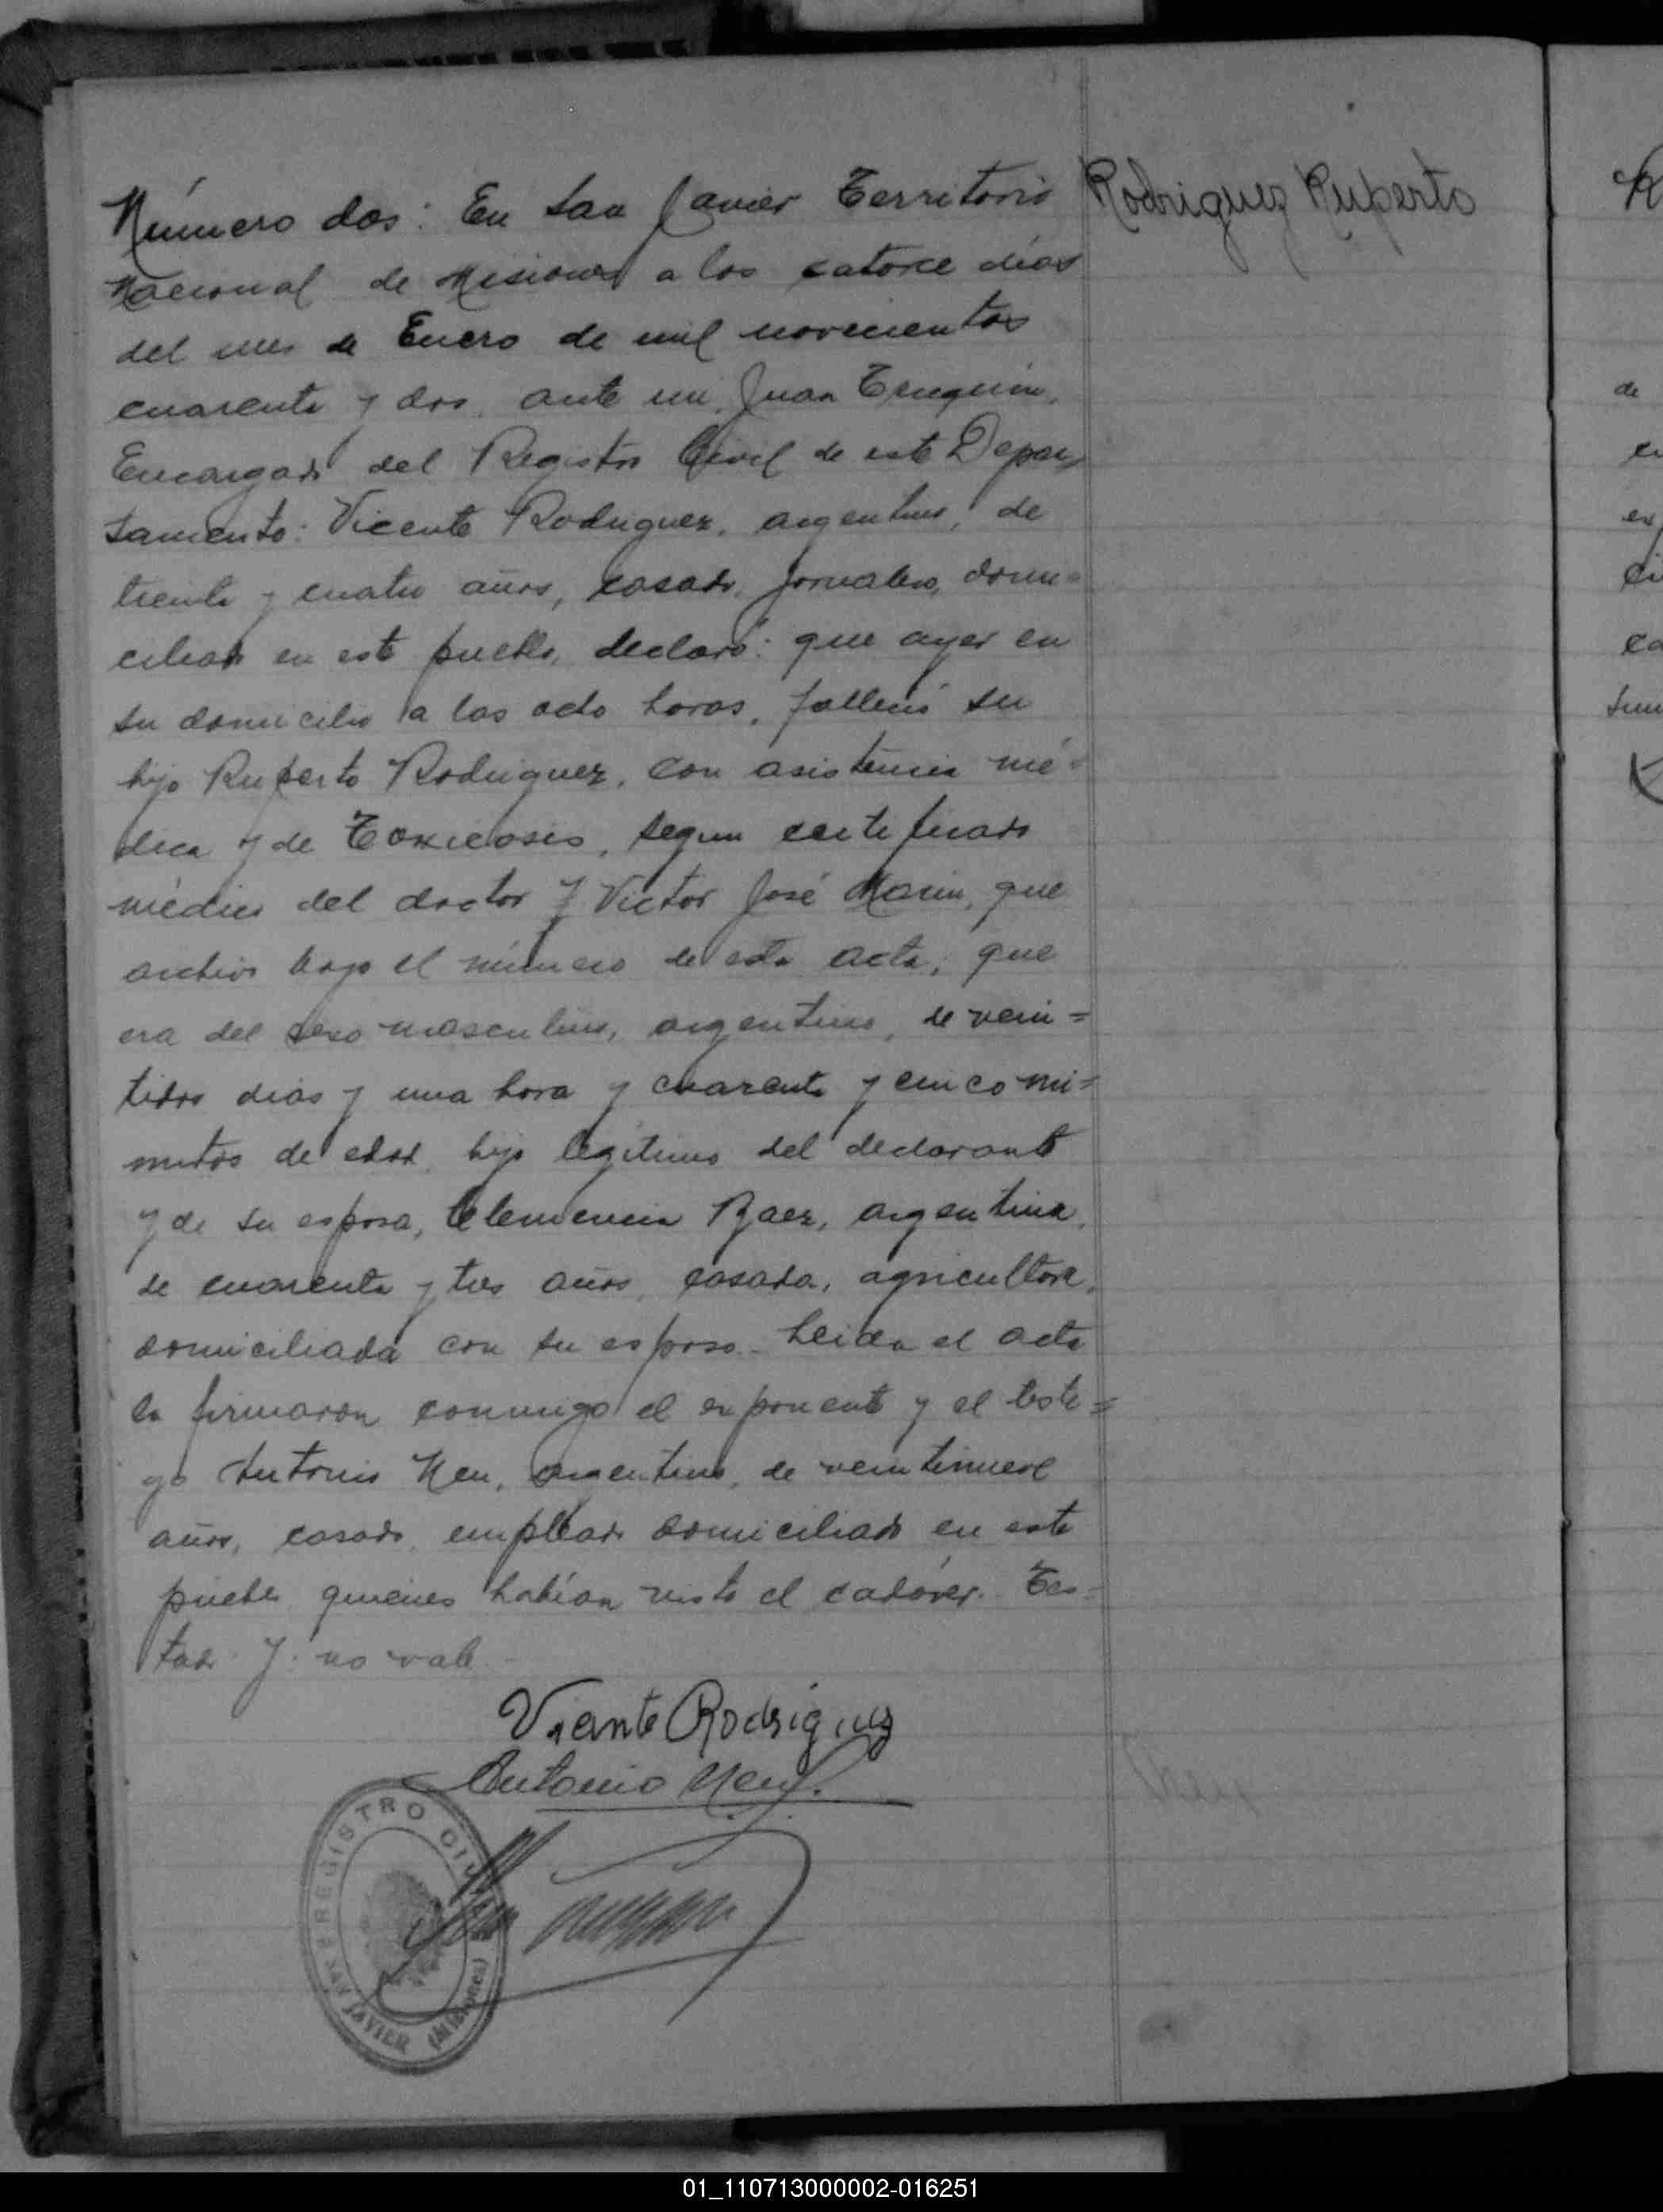 Número dos: En San Javier Territorio
Nacional de Misiones a los catorce días
del mes de Enero de mil novecientos
cuarenta y dos, ante mi, Juan
Encargado del Registro Civil de este Depar=
tamento: Vicente Rodriguez, argentino, de
treinta y cuatro años, casado, jornalero, domi=
ciliado en este pueblo, declaró: que ayer en
su domicilio a las ocho horas, falleció su
hijo Ruperto Rodriguez, con asistencia mé=
dica y de Toxicosis, segun certificado
médico del doctor J Victor José Marin, que
archivo bajo el número de esta acta; que
era del sexo masculino, argentino, de vein=
tidos dias y una hora y cuarenta y cinco mi=
nutos de edad, hijo legitimo del declarante
y de su esposa, Clemencia Baez, argentina,
de cuarenta y tres años, casada, agricultora,
domiciliada con su esposo. Leida el acta
la firmaron conmigo el exponente y el testi=
go Antonio Neu, argentino, de veintinueve
años, casado, empleado domiciliado en este
pueblo quienes habían visto el cadáver. Tes=
tado: J: no vale
Vicente Rodriguez
Antonio Neu
REGISTRO CIVIL
SAN JAVIER (Misiones)
Rodriguez Ruperto
R
de
01_110713000002-016251